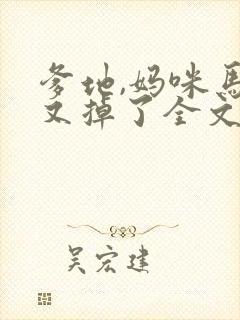 爹地,妈咪马
又掉了全文
吴宏建